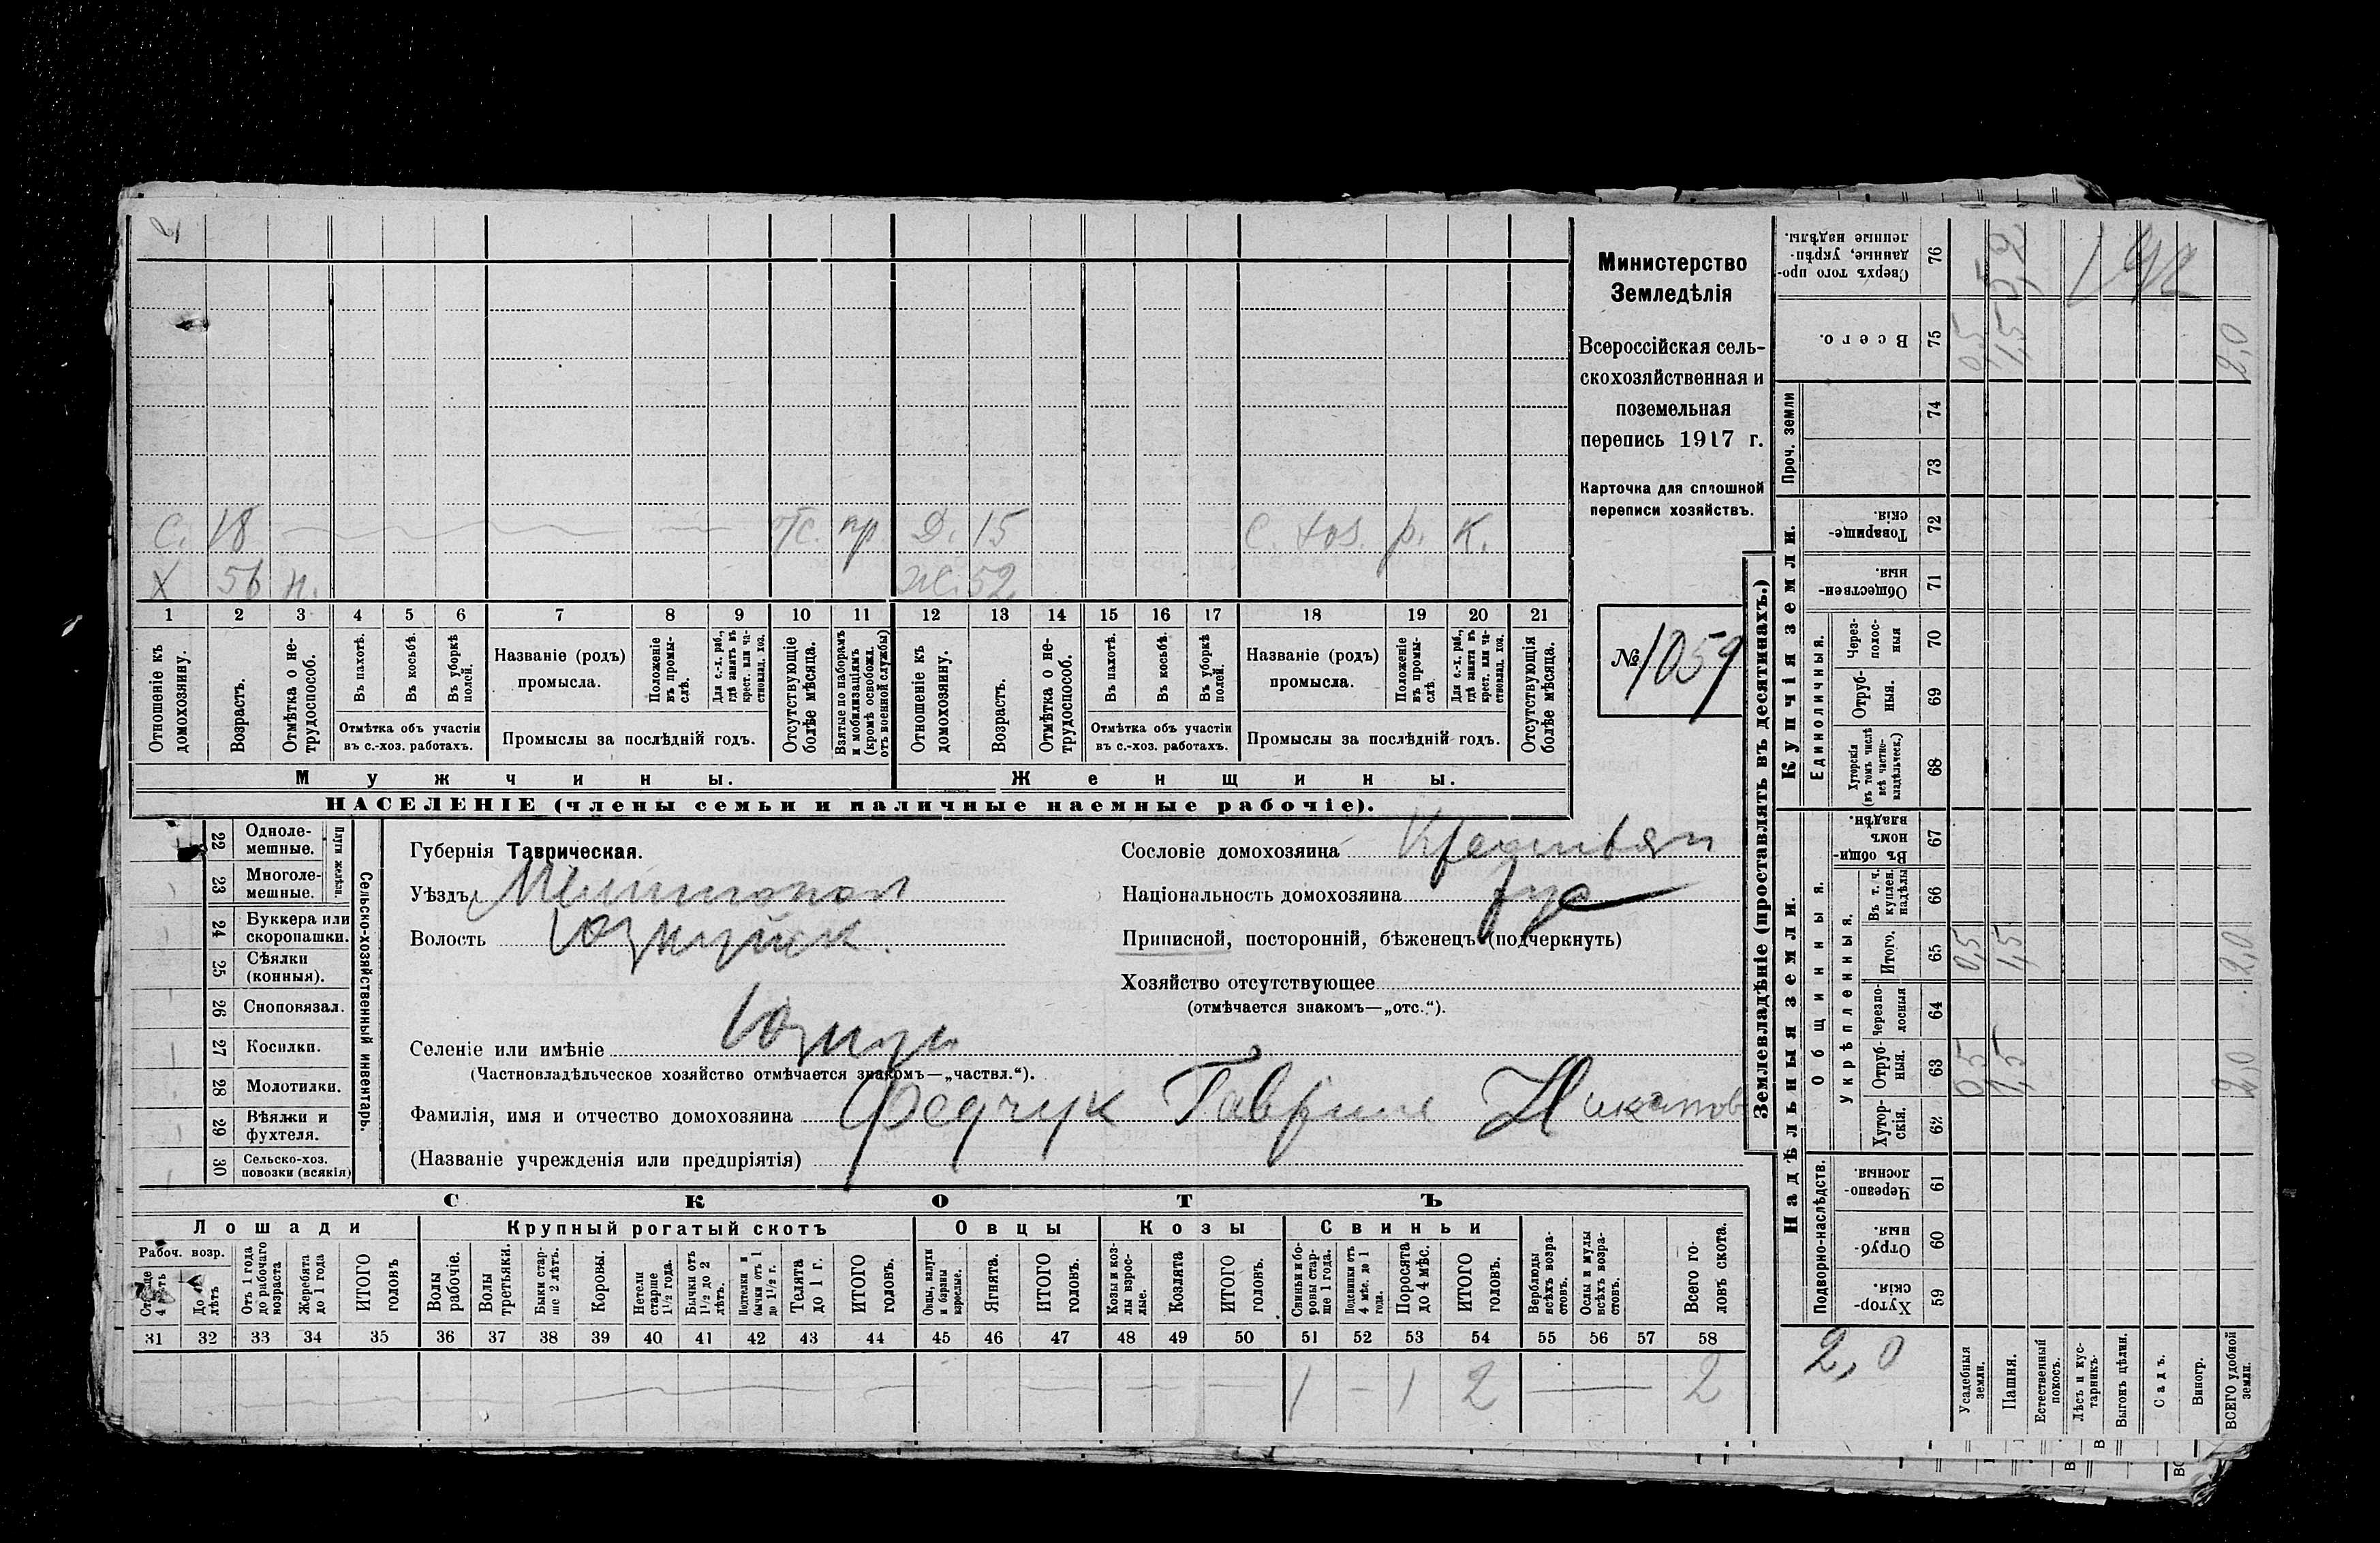 Министерство
Земледѣлія
Всероссійская сель-
скохозяйственная и
поземельная
перепись 1917 г.
Карточка для сплошной
переписи хозяйствъ.
№ 1059
С. 18 отс. пр. Д. 15 С. р. К.
Х 56 н. Ж. 52
1 2 3 4 5 6 7 8 9 10 11 12 13 14 15 16 17 18 19 20 21
Отношеніе къ домохозяину.
Возрастъ.
Отмѣтка о не-трудоспособ.
Въ пахотѣ.
Въ косьбѣ.
Въ уборкѣ полей.
Отмѣтка объ участіи
въ с.-хоз. работахъ.
Названіе (родъ)
промысла.
Положеніе въ промы-слѣ.
Для с.-х. раб., гдѣ занятъ въ крест. или ча-стновлад. хоз.
Промыслы за послѣдній годъ.
Отсутствующіе болѣе мѣсяца.
Взятые по наборамъ и мобилизаціямъ (кромѣ освобожд. отъ военной службы)
Отношеніе къ домохозяину.
Возрастъ.
Отмѣтка о не-трудоспособ.
Въ пахотѣ.
Въ косьбѣ.
Въ уборкѣ полей.
Отмѣтка объ участіи
въ с.-хоз. работахъ.
Названіе (родъ)
промысла.
Положеніе въ промы-слѣ.
Для с.-х. раб., гдѣ занята въ крест. или ча-стновлад. хоз.
Промыслы за послѣдній годъ.
Отсутствующія болѣе мѣсяца.
Мужчины. Женщины.
НАСЕЛЕНІЕ (члены семьи и наличные наемные рабочіе).
Сельско-хозяйственный инвентарь.
Плуги желѣзн.
22 Одноле-мешные.
23 Многоле-мешные.
24 Буккера или скоропашки.
25 Сѣялки (конныя).
26 Сноповязал.
27 Косилки.
28 Молотилки.
29 Вѣялки и фухтеля.
30 Сельско-хоз. повозки (всякія)
Губернія Таврическая.
Уѣздъ Мелитопол
Волость Юзкуйск.
Селеніе или имѣніе Юзкуи
(Частновладѣльческое хозяйство отмѣчается знакомъ—„частвл.“).
Фамилія, имя и отчество домохозяина Федчук Гаврил Никитов
(Названіе учрежденія или предпріятія)
Сословіе домохозяина Крестьян
Національность домохозяина рус
Приписной, посторонній, бѣженецъ (подчеркнуть)
Хозяйство отсутствующее
(отмѣчается знакомъ—„отс.“).
СКОТЪ
Лошади Крупный рогатый скотъ Овцы Козы Свиньи
Рабоч. возр.
Старше 4 лѣтъ
До 4 лѣтъ
Отъ 1 года до рабочаго возраста
Жеребята до 1 года
ИТОГО головъ
Волы рабочіе.
Волы третьяки.
Быки стар-ше 2 лѣтъ.
Коровы.
Нетели старше 1 1/2 года.
Бычки отъ 1 1/2 до 2 лѣтъ.
Подтелки и бычки отъ 1 до 1 1/2 г.
Телята до 1 г.
ИТОГО головъ.
Овцы, валухи и бараны взрослые.
Ягнята.
ИТОГО головъ.
Козы и коз-лы взрос-лые.
Козлята
ИТОГО головъ.
Свиньи и бо-ровы стар-ше 1 года.
Подсвинки отъ 4 мѣс. до 1 года.
Поросята до 4 мѣс.
ИТОГО головъ.
Верблюды всѣхъ возра-стовъ.
Ослы и мулы всѣхъ возра-стовъ.
Всего го-ловъ скота.
31 32 33 34 35 36 37 38 39 40 41 42 43 44 45 46 47 48 49 50 51 52 53 54 55 56 57 58
1 – 1 2 — 2
Землевладѣніе (проставлять въ десятинахъ.)
Купчія земли.
Надѣльныя земли.
Проч. земли
Единоличныя.
Общинныя.
Укрѣпленныя.
Подворно-наслѣдств.
76 Сверхъ того про-данные, укрѣп-ленные надѣлы. 5,9
75 Всего. 0,5 1,5 2,0
74
73
72 Товарище-скія.
71 Обществен-ныя.
70 Через-полос-ныя
69 Отруб-ныя.
68 Хуторскія (въ томъ числѣ всѣ частно-владѣльческ.)
67 Въ общин-номъ владѣн.
66 Въ т. ч. куплен. надѣлы
65 Итого. 0,5 1,5 2,0
64 Черезпо-лосныя
63 Отруб-ныя. 0,5 1,5 2,0
62 Хутор-скія.
61 Черезпо-лосныя.
60 Отруб-ныя.
59 Хутор-скія.
2,0
Усадебныя земли.
Пашня.
Естественный покосъ.
Лѣсъ и кус-тарникъ.
Выгонъ цѣлин.
Садъ.
Виногр.
ВСЕГО удобной земли.